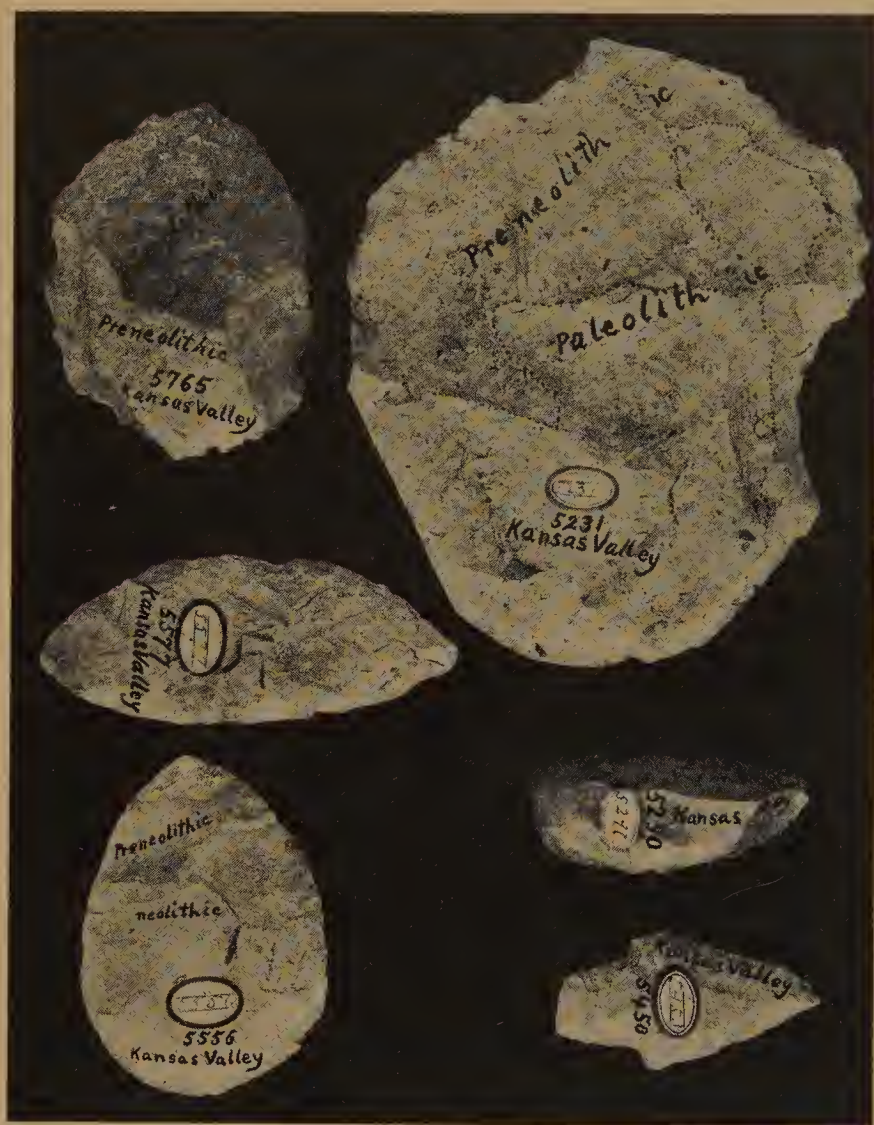 Preneolithic
5765
Kansas Valley
Preneolithic
Paleolithic
5231
Kansas Valley
5377
Kansas Valley
Preneolithic
neolithic
5556
Kansas Valley
5230
Kansas
Kansas Valley
5450